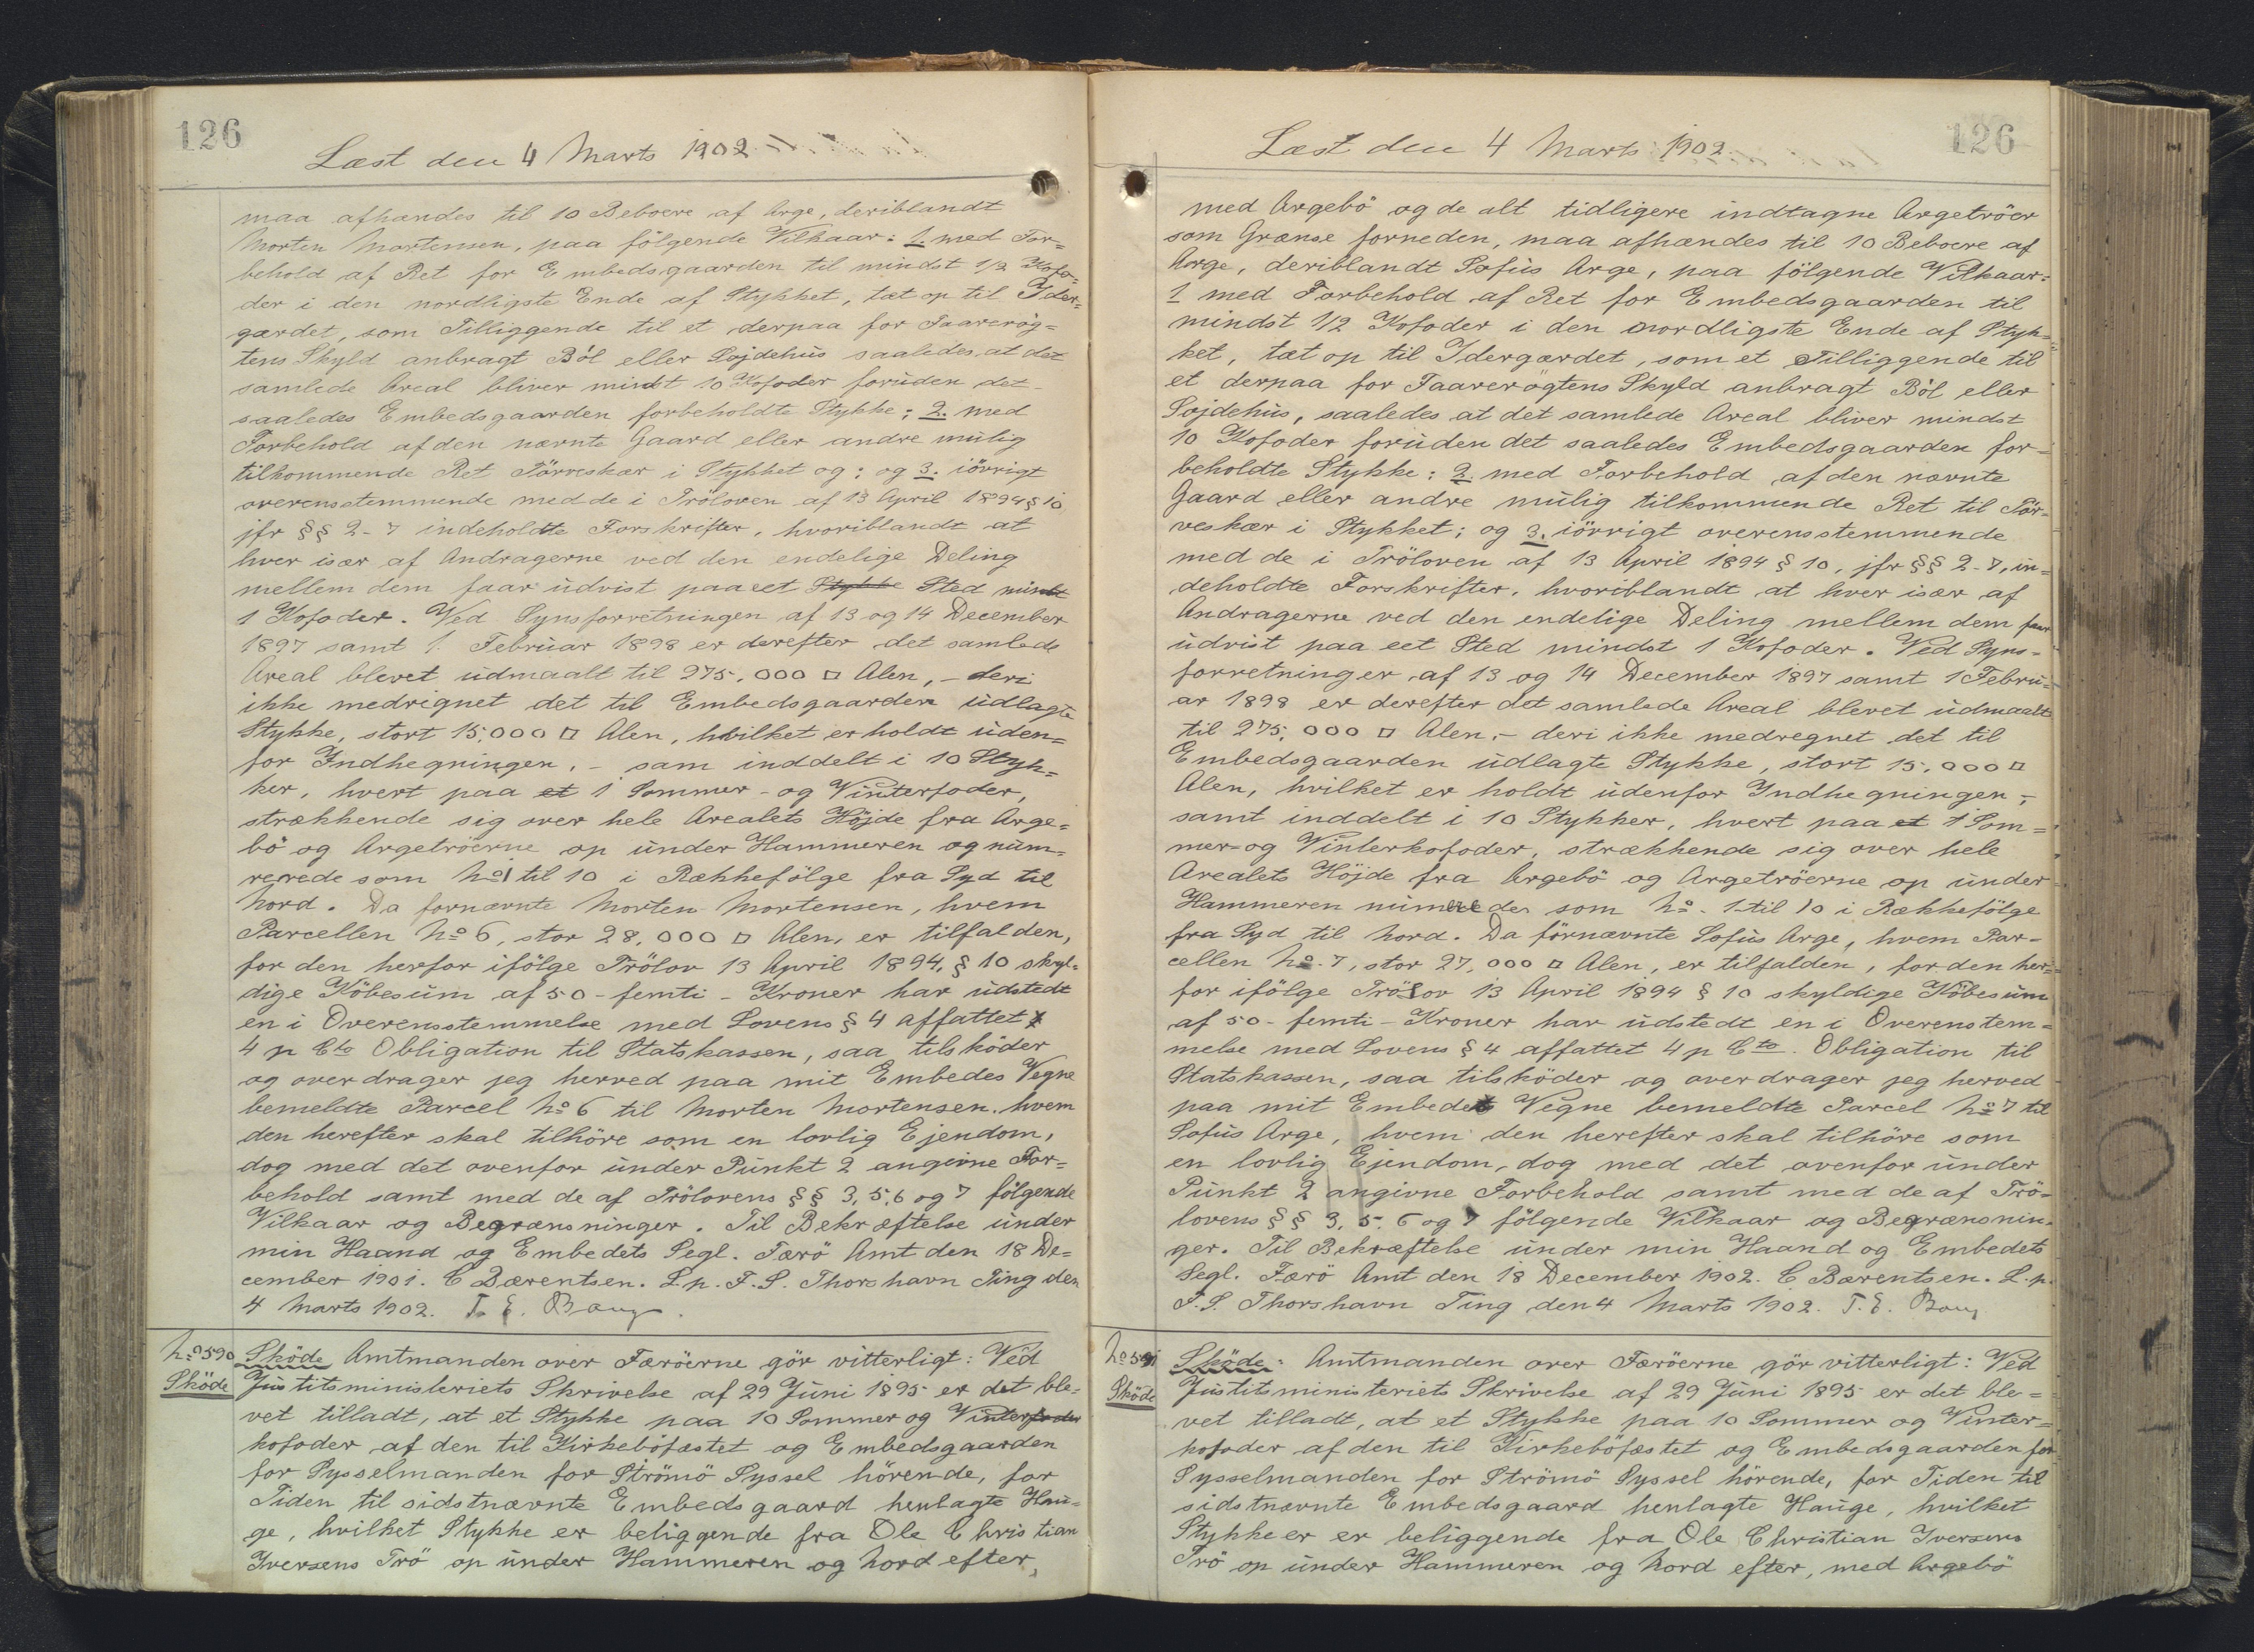 126
Læst den 4 Marts 1902
maa afhændes til 10 Beboere af Arge, deriblandt
Morten Mortensen, paa følgende Vilkaar: 1. med For=
behold af Ret for Embedsgaarden til mindst 1/2 Kofo=
der i den nordligste Ende af Stykket, tæt op til Ider=
gærdet, som Tilliggende til et derpaa for Faarerög=
tens Skyld anbragt Ból eller Sojdehús saaledes, at det
samlede Areal bliver mindst 10 Kofoder foruden det
saaledes Embedsgaarden forbeholdte Stykke; 2. med
Forbehold af den nævnte Gaard eller andre mulig
tilkommende Ret Törveskær i Stykket og; og 3. iövrigt
overensstemmende med de i Tröloven af 13 April 1894 § 10
jfr §§ 2-7 indeholdte Forskrifter, hvoriblandt at
hver især af Andragerne ved den endelige Deling
mellem dem faar udvist paa eet Stykke Sted mindst
1 Kofoder. Ved Synsforretningen af 13 og 14 December
1897 samt 1. Februar 1898 er derefter det samlede
Areal blevet udmaalt til 275,000 □ Alen, - deri
ikke medregnet det til Embedsgaarden udlagte
Stykke, stort 15,000 □ Alen, hvilket er holdt uden=
for Indhegningen, - sam inddelt i 10 Styk=
ker, hvert paa et 1 Sommer- og Vinterfoder,
strækkende sig over hele Arealets Höjde fra Arge=
bö og Argetröerne op under Hammeren og num=
rerede som No 1 til 10 i Rækkefölge fra Syd til
Nord. Da fornævnte Morten Mortensen, hvem
Parcellen No 6, stor 28,000 □ Alen, er tilfalden,
for den herfor ifölge Trölov 13 April 1894, § 10 skyl=
dige Köbesum af 50 - femti - Kroner har udstedt
en i Overensstemmelse med Lovens § 4 affattet
4 p Cto Obligation til Statskassen, saa tilsköder
og overdrager jeg herved paa mit Embedes Vegne
bemeldte Parcel No 6 til Morten Mortensen, hvem
den herefter skal tilhöre som en lovlig Ejendom,
dog med det ovenfor under Punkt 2 angivne For=
behold samt med de af Trölovens §§ 3, 5, 6 og 7 fölgende
Vilkaar og Begrænsninger. Til Bekræftelse under
min Haand og Embedets Segl. Færö Amt den 18 De=
cember 1901. C Bærentsen. L.p. F.S. Thorshavn Ting den
4 Marts 1902. T. E. Bang.
No 590
Sköde
Sköde Amtmanden over Færöerne gör vitterligt: Ved
Justitsministeriets Skrivelse af 29 Juni 1895 er det ble=
vet tilladt, at et Stykke paa 10 Sommer og Vinterfoder
kofoder af den til Kirkeböfæstet og Embedsgaarden
for Sysselmanden for Strömö Syssel hörende, for
Tiden til sidstnævnte Embedsgaard henlagte Hau=
ge, hvilket Stykke er beliggende fra Ole Christian
Iversens Trö op under Hammeren og Nord efter,
126
Læst den 4 Marts 1902
med Argebö og de alt tidligere indtagne Argetröer
som Grænse forneden, maa afhændes til 10 Beboere af
Arge, deriblandt Sofus Arge, paa fölgende Vilkaar:
1 med Forbehold af Ret for Embedsgaarden til
mindst 1/2 Kofoder i den nordligste Ende af Styk=
ket, tæt op til Idergærdet, som et Tilliggende til
et derpaa for Faarerögtens Skyld anbragt Ból eller
Sojdehús, saaledes at det samlede Areal bliver mindst
10 Kofoder foruden det saaledes Embedsgaarden for=
beholdte Stykke; 2. med Forbehold af den nævnte
Gaard eller andre mulig tilkommende Ret til Tör=
veskær i Stykket; og 3. iövrigt overensstemmende
med de i Tröloven af 13 April 1894 § 10, jfr §§ 2-7, in=
deholdte Forskrifter, hvoriblandt at hver især af
Andragerne ved den endelige Deling mellem dem faar
udvist paa eet Sted mindst 1 Kofoder. Ved Syns=
forretninger af 13 og 14 December 1897 samt 1 Febru=
ar 1898 er derefter det samlede Areal blevet udmaalt
til 275,000 □ Alen, - deri ikke medregnet det til
Embedsgaarden udlagte Stykke, stort 15,000 □
Alen, hvilket er holdt udenfor Indhegningen;
samt inddelt i 10 Stykker, hvert paa et 1 Som=
mer= og Vinterkofoder, strækkende sig over hele
Arealets Höjde fra Argebö og Argetröerne op under
Hammeren numrerede som No. 1 til 10 i Rækkefölge
fra Syd til Nord. Da fornævnte Sofus Arge, hvem Par=
cellen No. 7, stor 27,000 □ Alen, er tilfalden, for den her=
for ifölge Trölov 13 April 1894 § 10 skyldige Köbesum
af 50 - femti - Kroner har udstedt en i Overenstem=
melse med Lovens § 4 affattet 4 p Cto. Obligation til
Statskassen, saa tilsköder og overdrager jeg herved
paa mit Embedes Vegne bemeldte Parcel No 7 til
Sofus Arge, hvem den herefter skal tilhöre som
en lovlig Ejendom, dog med det ovenfor under
Punkt 2 angivne Forbehold samt med de af Trö=
lovens §§ 3, 5, 6 og 7 fölgende Vilkaar og Begrænsnin=
ger. Til Bekræftelse under min Haand og Embedets
Segl. Færö Amt den 18 December 1902. C Bærentsen. L.p.
F.S. Thorshavn Ting den 4 Marts 1902. T. E. Bang
No 591
Sköde
Sköde: Amtmanden over Færöerne gör vitterligt: Ved
Justitsministeriets Skrivelse af 29 Juni 1895 er det ble=
vet tilladt, at et Stykke paa 10 Sommer og Vinter=
kofoder af den til Kirkeböfæstet og Embedsgaarden for
Sysselmanden for Strömö Syssel hörende, for Tiden til
sidstnævnte Embedsgaard henlagte Hauge, hvilket
Stykke er er beliggende fra Ole Christian Iversens
Trö op under Hammeren og Nord efter, med Argebö